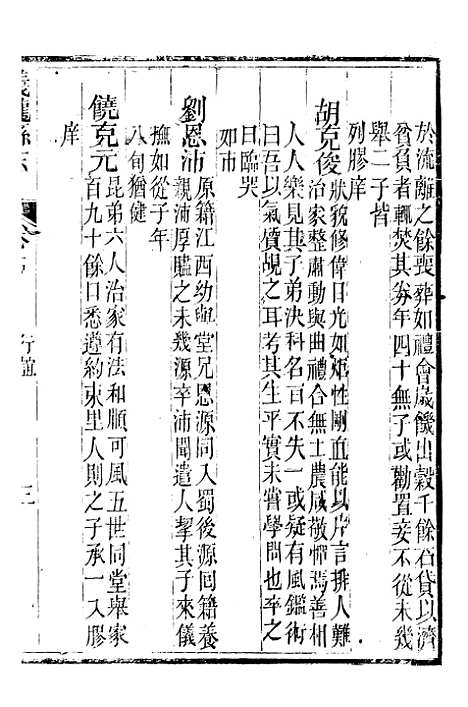 於流離之餘喪葬如禮會歲饑出穀千餘石貸以濟
貧負者輒焚其券年四十無子或勸置妾不從未幾
舉二子皆
列膠庠
胡克俊狀貌修偉目光如炬性剛直能以片言排人難
治家整肅動與曲禮合無士農咸敬憚焉善相
人人樂見其子弟決科名百不失一或疑有風鑑術
曰吾以氣質覘之耳考其生平實未嘗學問也卒之
日臨哭
如市
劉恩沛原籍江西幼與堂兄恩源同入蜀後源回籍養
親沛厚贐之未幾源卒沛聞遣人挈其子來儀
撫如從子年
八旬猶健
饒克元昆弟六人治家有法和順可風五世同堂舉家
百九十餘口悉遵約束里人則之子承一入膠
庠
儀隴縣志
行誼
三